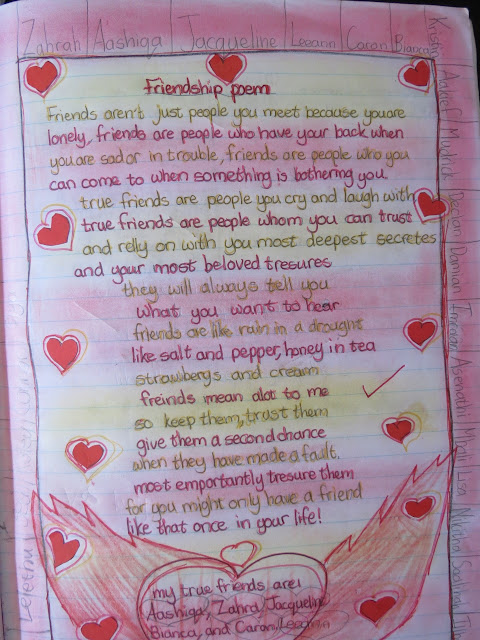 Zahrah Aashiqa Jacqueline Leeann Caran Bianca
Friendship poem
Friends aren't just people you meet because you are
lonely, friends are people who have your back when
you are sad or in trouble, friends are people who you
can come to when something is bothering you.
true friends are people you cry and laugh with
true friends are people whom you can trust
and relly on with you most deepest secretes
and your most beloved tresures
they will always tell you
what you want to hear
friends are like rain in a drought
like salt and pepper, honey in tea
strawberys and cream
freinds mean alot to me
so keep them, trust them
give them a second chance
when they have made a fault.
most emportantly tresure them
for you might only have a friend
like that once in your life!
my true friends are:
Aashiqa, Zahra, Jacqueline
Bianca, and Caran, Leeann
Declan Damian
Asenathi
Lisa